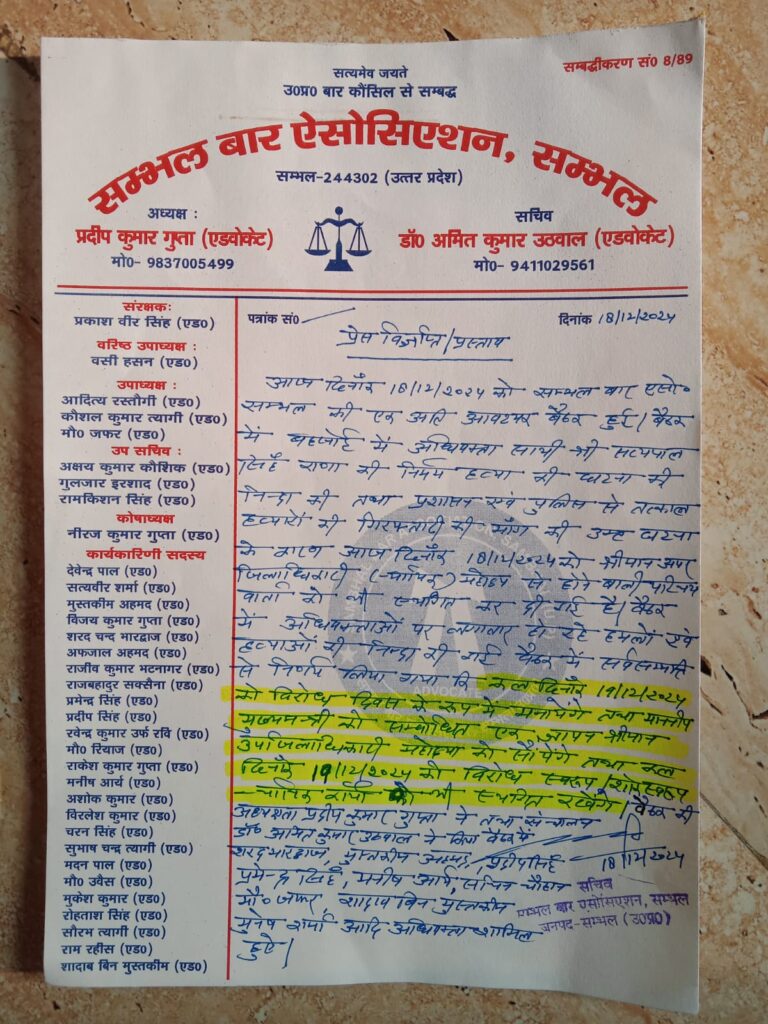 सत्यमेव जयते
सम्बद्धीकरण सं0 8/89
उ0प्र0 बार कौंसिल से सम्बद्ध
सम्भल बार ऐसोसिएशन, सम्भल
सम्भल-244302 (उत्तर प्रदेश)
अध्यक्ष :
प्रदीप कुमार गुप्ता (एडवोकेट)
मो0- 9837005499
सचिव
डॉ0 अमित कुमार उठवाल (एडवोकेट)
मो0- 9411029561
संरक्षकः
प्रकाश वीर सिंह (एड0)
वरिष्ठ उपाध्यक्ष
वसी हसन (एड0)
उपाध्यक्ष
आदित्य रस्तौगी (एड0)
कौशल कुमार त्यागी (एड0)
मौ0 जफर (एड0)
उप सचिव :
अक्षय कुमार कौशिक (एड0)
गुलजार इरशाद (एड0)
रामकिशन सिंह (एड0)
कोषाध्यक्ष
नीरज कुमार गुप्ता (एड0)
कार्यकारिणी सदस्य
देवेन्द्र पाल (एड0)
सत्यवीर शर्मा (एड0)
मुस्तकीम अहमद (एड0)
विजय कुमार गुप्ता (एड0)
शरद चन्द भारद्वाज (एड0)
अफजाल अहमद (एड0)
राजीव कुमार भटनागर (एड0)
राजबहादुर सक्सैना (एड0)
प्रमेन्द्र सिंह (एड0)
प्रदीप सिंह (एड0)
रवेन्द्र कुमार उर्फ रवि (एड0)
मौ0 रियाज (एड0)
राकेश कुमार गुप्ता (एड0)
मनीष आर्य (एड0)
अशोक कुमार (एड0)
विरलेश कुमार (एड0)
चरन सिंह (एड0)
सुभाष चन्द्र त्यागी (एड0)
मदन पाल (एड0)
मौ0 उवैस (एड0)
मुकेश कुमार (एड0)
रोहताश सिंह (एड0)
सौरम त्यागी (एड0)
राम रहीस (एड0)
शादाब बिन मुस्तकीम (एड0)
पत्रांक सं0
दिनांक 18/12/2024
प्रेस विज्ञप्ति/प्रस्ताव
आज दिनाँक 18/12/2024 को सम्भल बार एसो०
सम्भल की एक अति आवश्यक बैठक हुई। बैठक
में बहजोई में अधिवक्ता साथी श्री सत्यपाल
सिंह राणा की निर्मम हत्या की घटना की
निन्दा की तथा प्रशासन एवं पुलिस से तत्काल
हत्यारों की गिरफ्तारी की माँग की उक्त घटना
के कारण आज दिनाँक 18/12/2024 को श्रीमान अपर
जिलाधिकारी महोदय से होने वाली परिचय
वार्ता को भी स्थगित कर दी गई है। बैठक
में अधिवक्ताओं पर लगातार हो रहे हमलों एवं
हत्याओं की निन्दा की गई बैठक में सर्वसम्मति
से निर्णय लिया गया कि कल दिनाँक 19/12/2024
को विरोध दिवस के रूप में मनायेंगे तथा माननीय
मुख्यमन्त्री को सम्बोधित एक ज्ञापन श्रीमान
उपजिलाधिकारी महोदय को सौंपेंगे तथा कल
दिनाँक 19/12/2024 को विरोध स्वरूप/शोक स्वरूप
न्यायिक कार्य को भी स्थगित रखेंगे। बैठक की
अध्यक्षता प्रदीप कुमार गुप्ता ने तथा संचालन
डॉ० अमित कुमार उठवाल ने किया बैठक में
शरद भारद्वाज, मुस्तकीम अहमद, प्रदीप सिंह
18/12/2024
प्रमेन्द्र सिंह, मनीष आर्य, सचिन चौहान
मौ० जफर, शादाब बिन मुस्तकीम
मुकेश शर्मा आदि अधिवक्ता शामिल
हुए।
सचिव
सम्भल बार ऐसोसिएशन, सम्भल
जनपद-सम्भल (उ0प्र0)
ADVOCATE